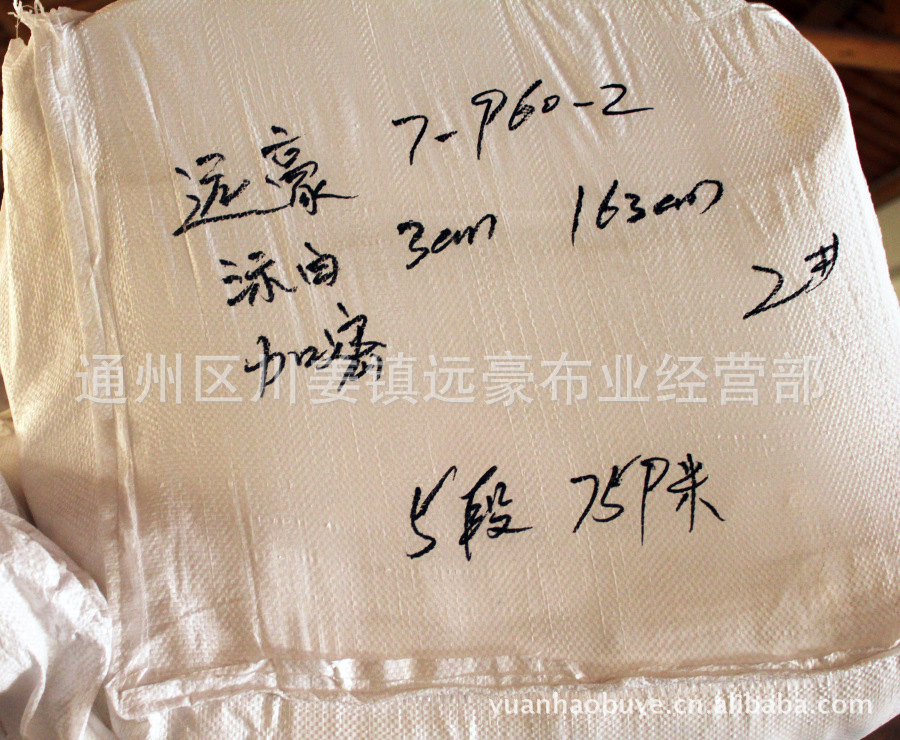 远豪 7-P60-2
涤白 3cm 163cm
加密 2#
通州区川姜镇远豪布业经营部
5段 75P米
yuanhaobuye.cn.alibaba.com